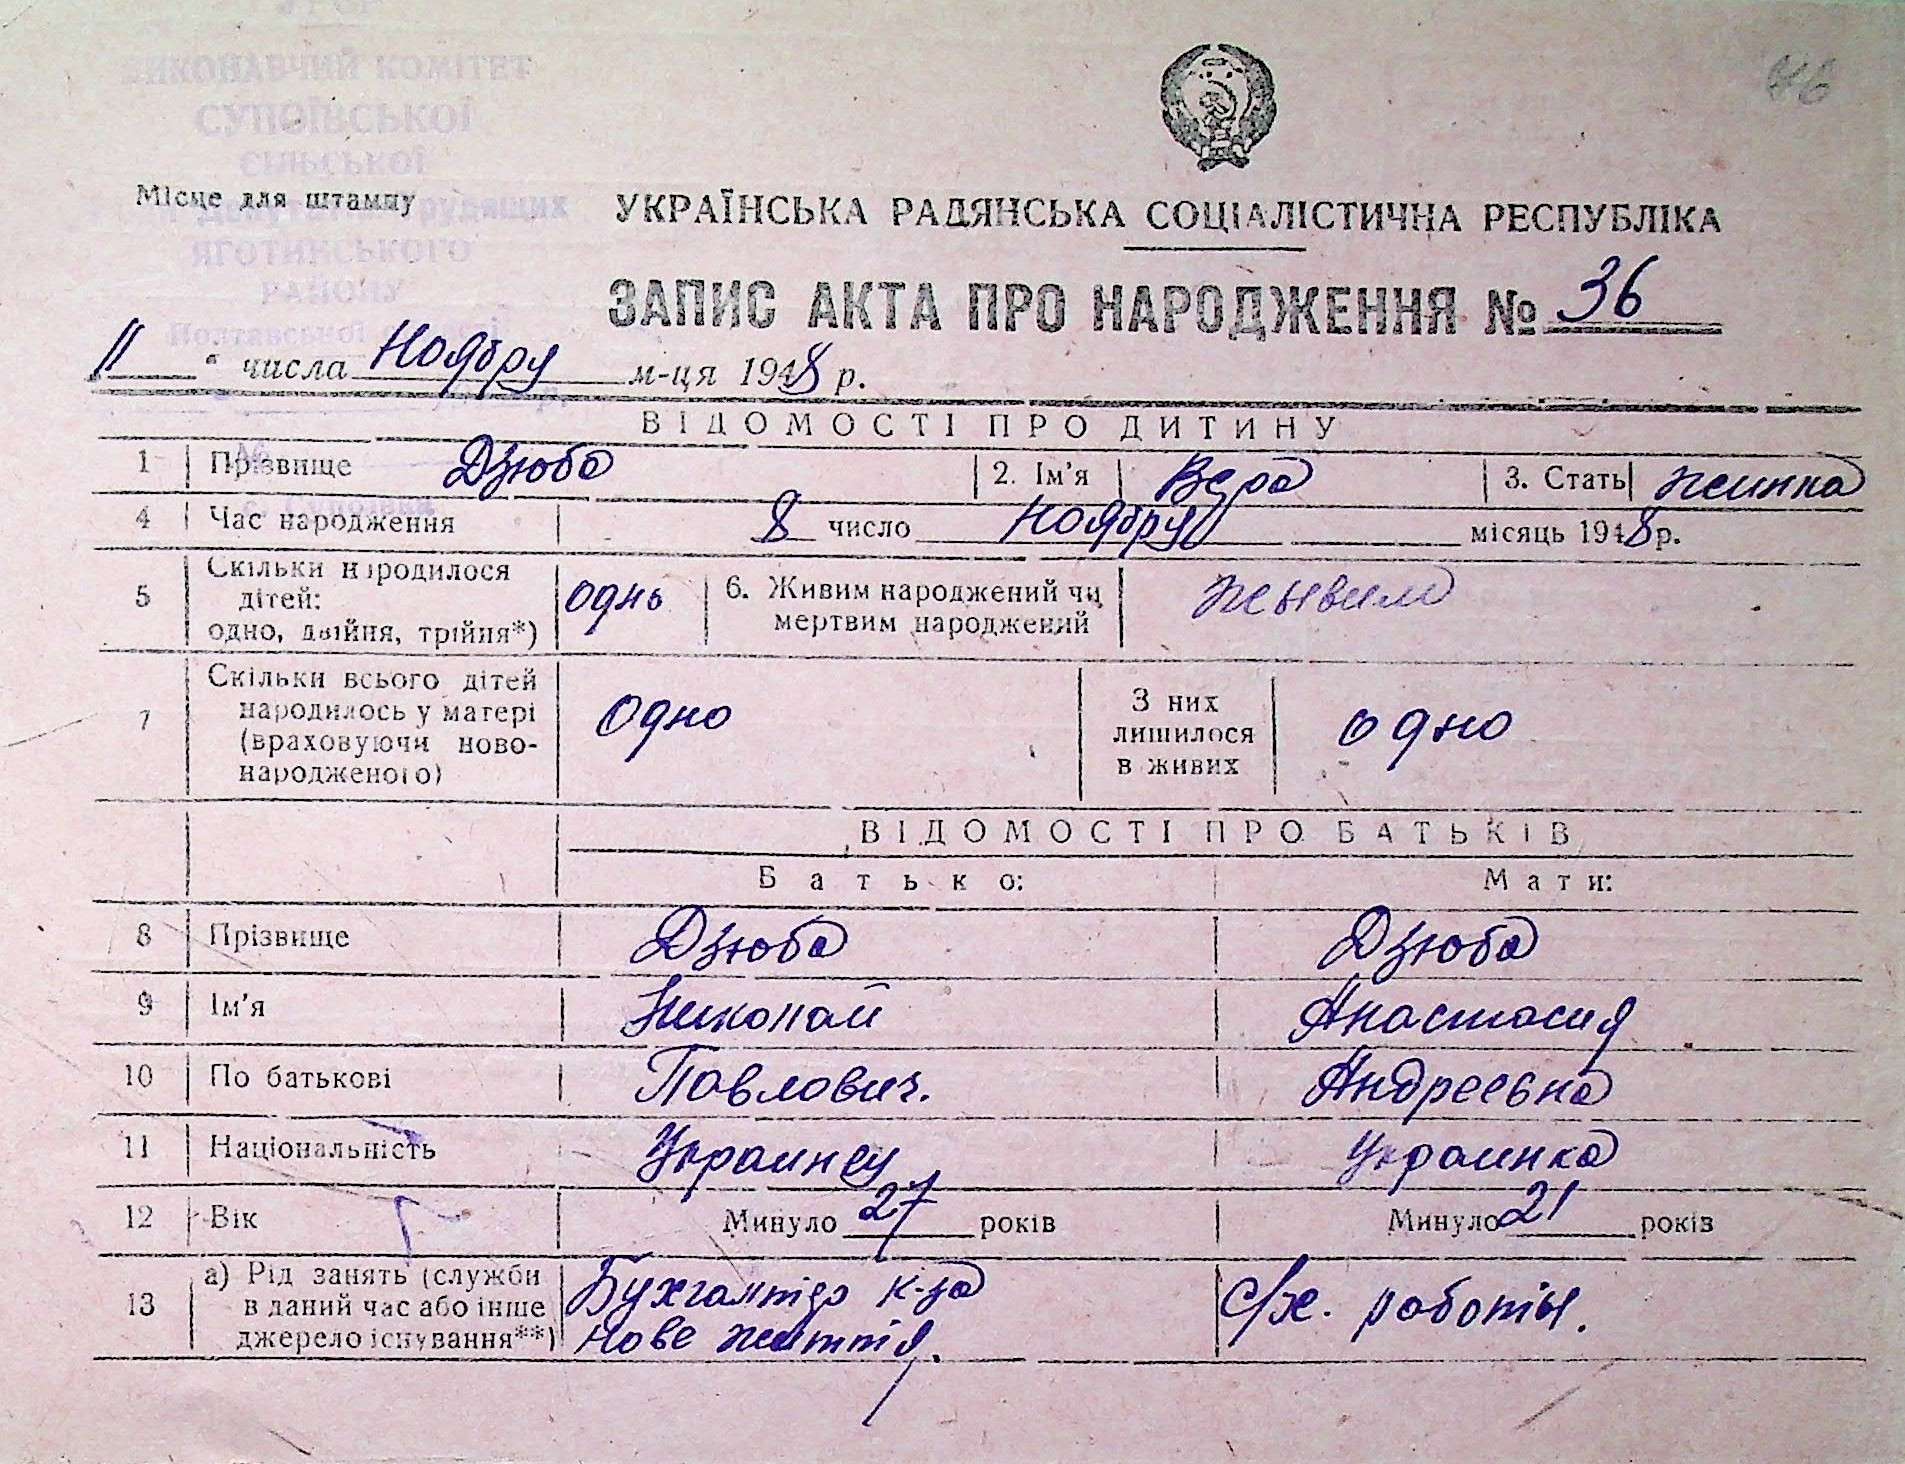 УРСР
ВИКОНАВЧИЙ КОМІТЕТ
СУПОЇВСЬКОЇ
СІЛЬСЬКОЇ
Депутатів Трудящих
ЯГОТИНСЬКОГО
РАЙОНУ
Полтавської області
46
Місце для штампу
УКРАЇНСЬКА РАДЯНСЬКА СОЦІАЛІСТИЧНА РЕСПУБЛІКА
ЗАПИС АКТА ПРО НАРОДЖЕННЯ № 36
11 " числа Ноябру м-ця 1948 р.
ВІДОМОСТІ ПРО ДИТИНУ
1 Прізвище Дзюба 2. Ім'я Вера 3. Стать жинка
4 Час народження 8 число Ноябру місяць 1948 р.
5 Скільки народилося дітей: одно, двійня, трійня*) однь 6. Живим народжений чи мертвим народжений жывим
7 Скільки всього дітей народилось у матері (враховуючи новонародженого) одно З них лишилося в живих одно
ВІДОМОСТІ ПРО БАТЬКІВ
Батько: Мати:
8 Прізвище Дзюба Дзюба
9 Ім'я Николай Анастасия
10 По батькові Павлович. Андреевна
11 Національність Украинец Украинка
12 Вік Минуло 27 років Минуло 21 років
13 а) Рід занять (служби в даний час або інше джерело існування**) Бухгалтір к-за с/х. роботы.
Нове життія.